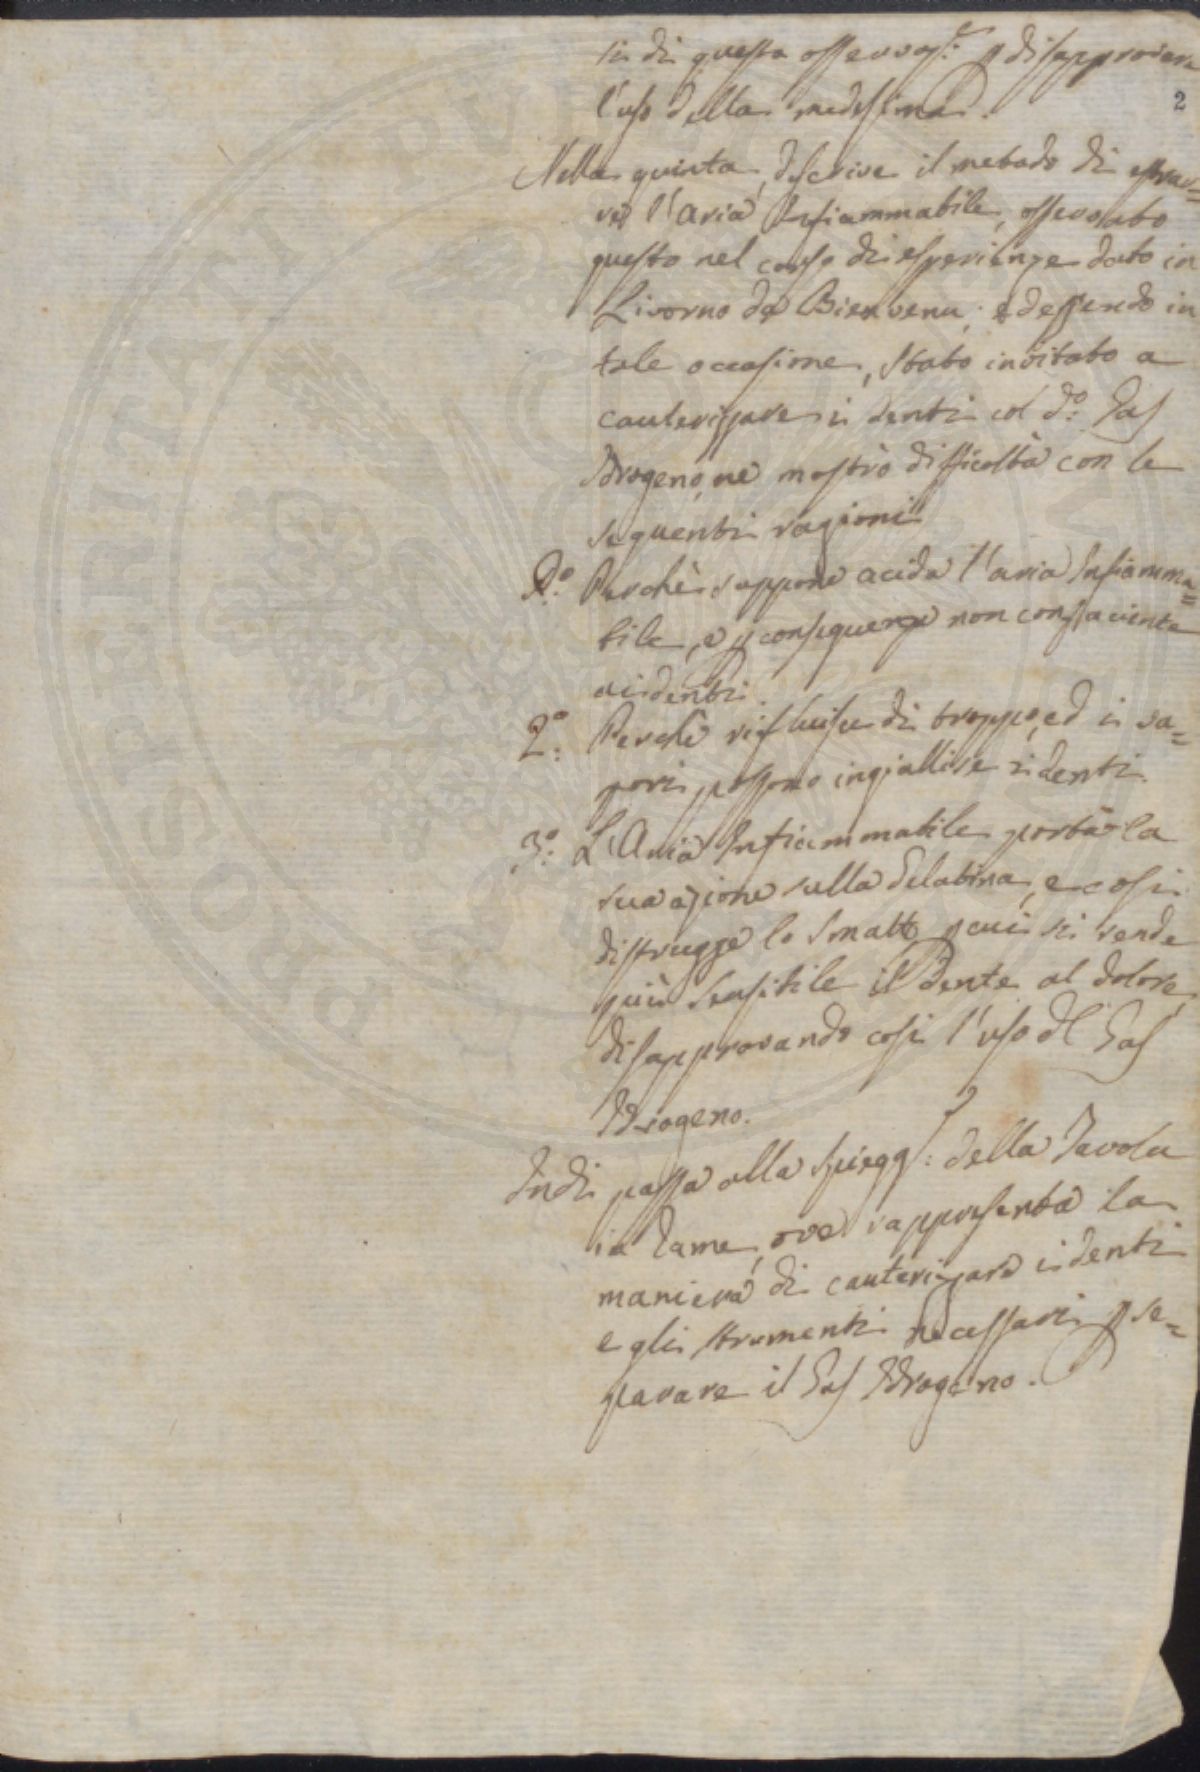 si di questa osservaz.e p disapprovare
l'uso della medesima.
2
Nella quinta, descrive il metodo di estrar=
re l'Aria Infiammabile, osservato
questo nel corso di esperienze dato in
Livorno da Bienvenu; ed essendo in
tale occasione, stato invitato a
cauterizzare i denti col d.o Gas
Idrogeno, ne mostrò difficoltà con le
seguenti ragioni
P.o Perchè suppone acida l'aria Infiamma=
bile, e p conseguenza non confaciente
ai denti.
2.o Perchè di troppo, ed i va=
pori possono ingiallire i denti.
3.o L'Aria Infiammabile porta la
sua azione sulla Gelatina, e cosi
distrugge lo smalto p cui si rende
più sensibile il Dente al dolore,
disapprovando cosi l'uso del Gas
Idrogeno.
Indi passa alla spiegaz.e della Tavola
in rame, ove rappresenta la
maniera di cauterizzare i denti
e gli strumenti necessari p se=
parare il Gas Idrogeno.
PROSPERITATI